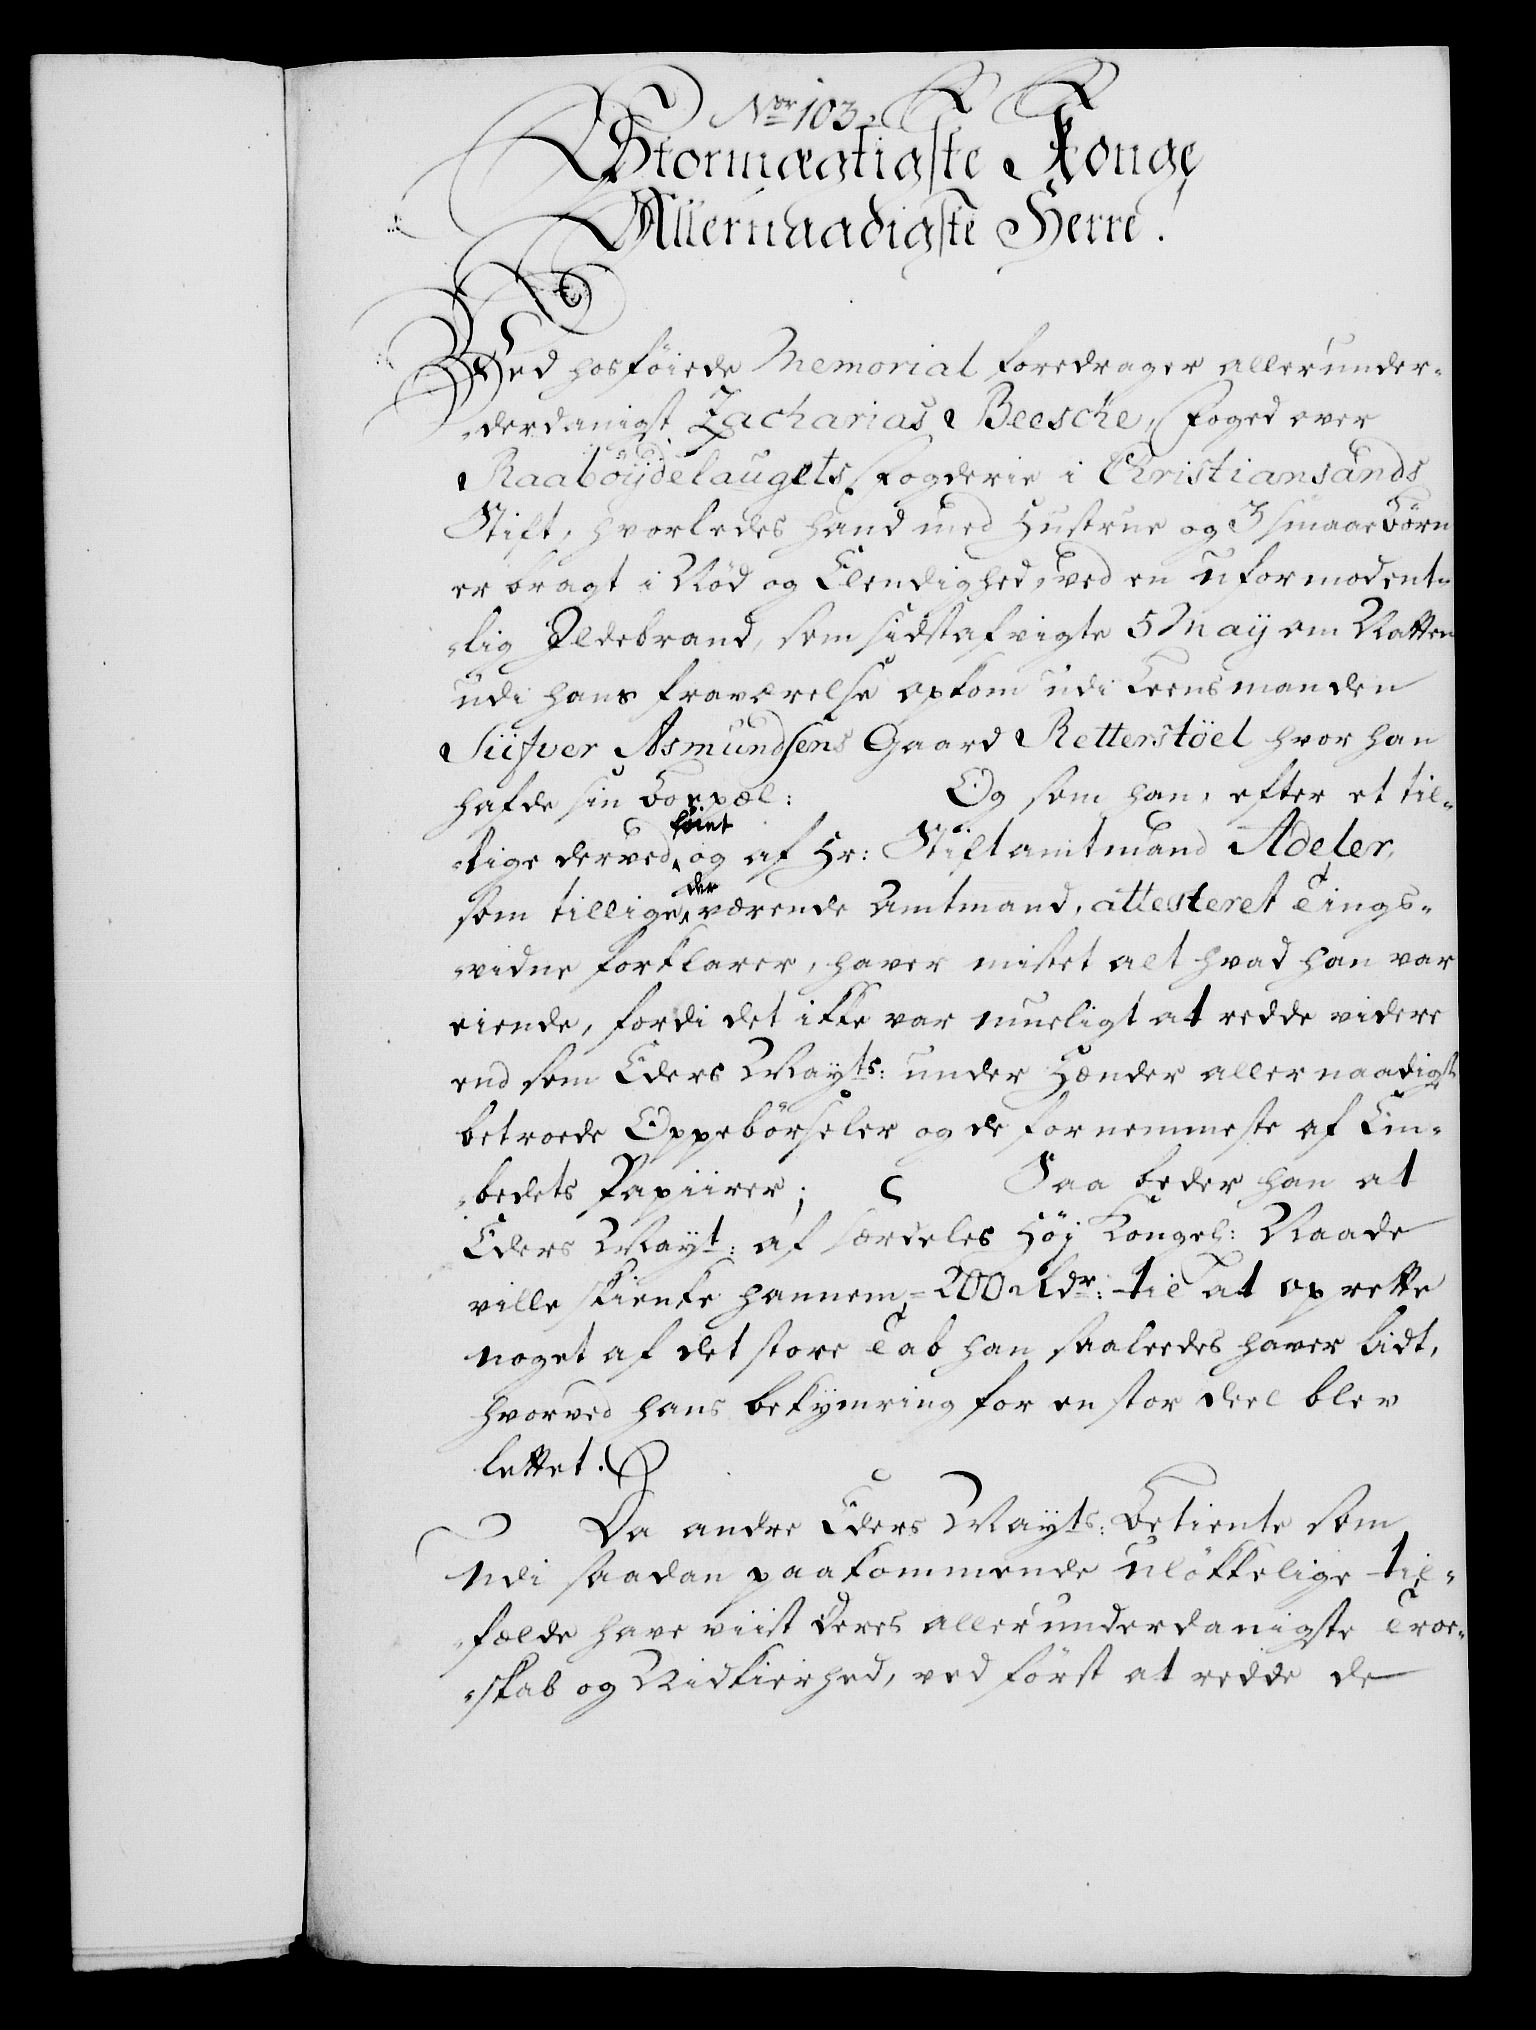 Nor 103.
Stormægtigste Konge
Allernaadigste Herre!
Ved hosföiede Memorial foredrager allerunder-
-derdanigst Zacharias Beesche, Foged over
Raaböydelaugets Fogderie i Christiansands
Stift, hvorledes hand med Hustrue og 3 smaae Börn
er bragt i Nöd og Elendighed, ved en uformodent-
-lig Ildebrand, som sidstafvigte 5 Maij om Natten
udi hans fraværelse opkom udi Leensmanden
Siifver Asmundsens Gaard Retterstöel hvor han
hafde sin Boepæl: Og som han, efter et til-
föiet
-lige derved, og af Hr: Stiftamtmand Adeler,
der
som tillige værende Amtmand, attesteret Tings-
-vidne forklarer, haver mistet alt hvad han var
eiende, fordi det ikke var mueligt at redde videre
end som Eders Mayts: under Hænder allernaadigst
betroede Oppebörseler og de fornemmeste af Em-
-bedets Papiirer; Saa beder han at
Eders Mayt: af særdeles Höj Kongel: Naade
ville skienke hannem, = 200 Rdr: til at oprette
noget af det store Tab han saaleedes haver lidt,
hvorved hans bekymring for en stor deel blev
lettet.
Da andre Eders Mayts: Betiente som
udi saadan paakommende ulökkelige til-
-fælde have viist deres allerunderdanigste Troe-
-skab og Nidkierhed, ved först at redde de